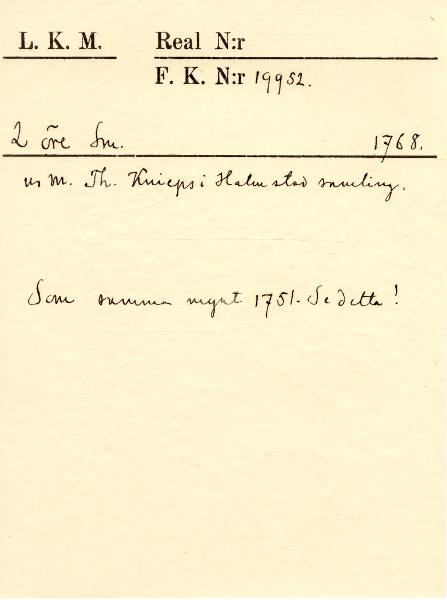 L. K. M. Real N:r
F. K. N:r 19952.
2 öre Sm. 1768.
ur M. Th. Knieps i Halmstad samling.
Som samma mynt 1751. Se detta!